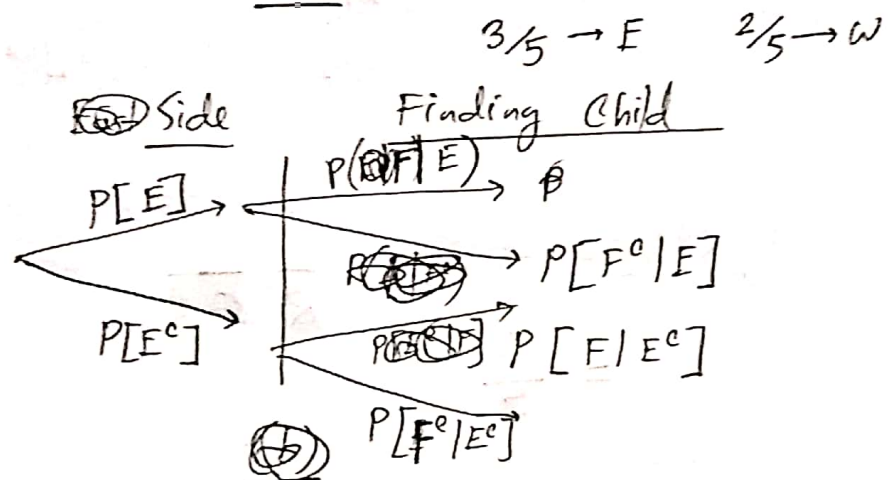 3/5 → E 2/5 → W
Side Finding Child
P[E] P(F|E)
P[Fᶜ|E]
P[Eᶜ] P[F|Eᶜ]
P[Fᶜ|Eᶜ]